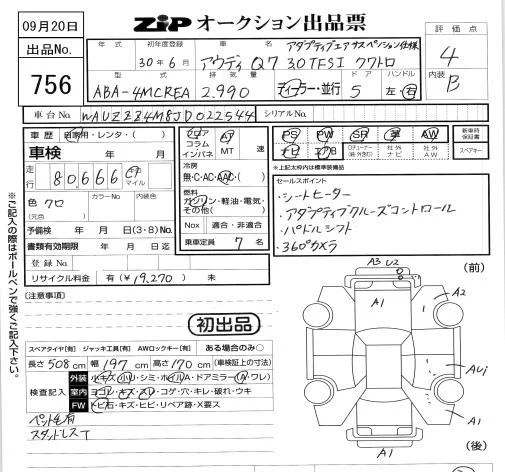 09月20日
ZIP オークション出品票
出品No.
756
年式 初年度登録 車名 アダプティブエアサスペンション仕様
30年6月 アウディ Q7 3.0TFSI クワトロ
型式 排気量 ドア ハンドル
ABA-4MCREA 2.990 ディーラー・並行 5 左・右
評価点
4
内装
B
車台No. WAUZZZ4M8JD022544 シリアルNo.
車歴 自家用・レンタ・( )
車検 年 月
走行 80,666 km マイル
色 クロ (元色) カラーNo. 内装色
予備検 年 月 日(3・8)No.
書類有効期限 年 月 日迄
登録No.
リサイクル料金 有(¥19,270) 未
フロア コラム インパネ
AT MT 速
冷房
無・C・AC・AAC( )
燃料
ガソリン・軽油・電気・その他( )
Nox 適合・非適合
乗車定員 7 名
PS PW SR 革 AW
ナビ エアB TVチューナー 社外ナビ 社外AW
新車時保証書
スペアキー
*上記太枠内は標準装備品
セールスポイント
・シートヒーター
・アダプティブクルーズコントロール
・パドルシフト
・360°カメラ
※ご記入の際はボールペンで強くご記入下さい。
(注意事項)
初出品
スペアタイヤ[有] ジャッキ工具[有] AWロックキー[有] ある場合のみ○
長さ 508cm 幅 197cm 高さ 170cm (車検証上の寸法)
検査記入
外装 小キズ・小U・シミ・ホイルA・ドアミラー(A・ワレ)
室内 ヨゴレ・キズ・スレ・コゲ・穴・キレ・破れ・ウキ
FW トビ石・キズ・ヒビ・リペア跡・X要ス
ペット毛有
スタッドレスT
(前)
A3 U2
A1
A2
A1
AUj
A1
(後)